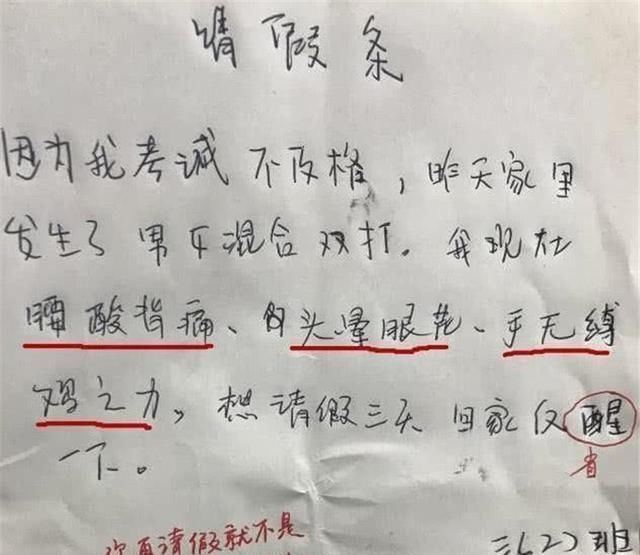 请假条
因为我考诚不及格，昨天家里
发生了男女混合双打。我现在
腰酸背痛、头晕眼花、手无缚
鸡之力，想请假三天回家反醒
一下。
省
你再请假就不是
三(2)班